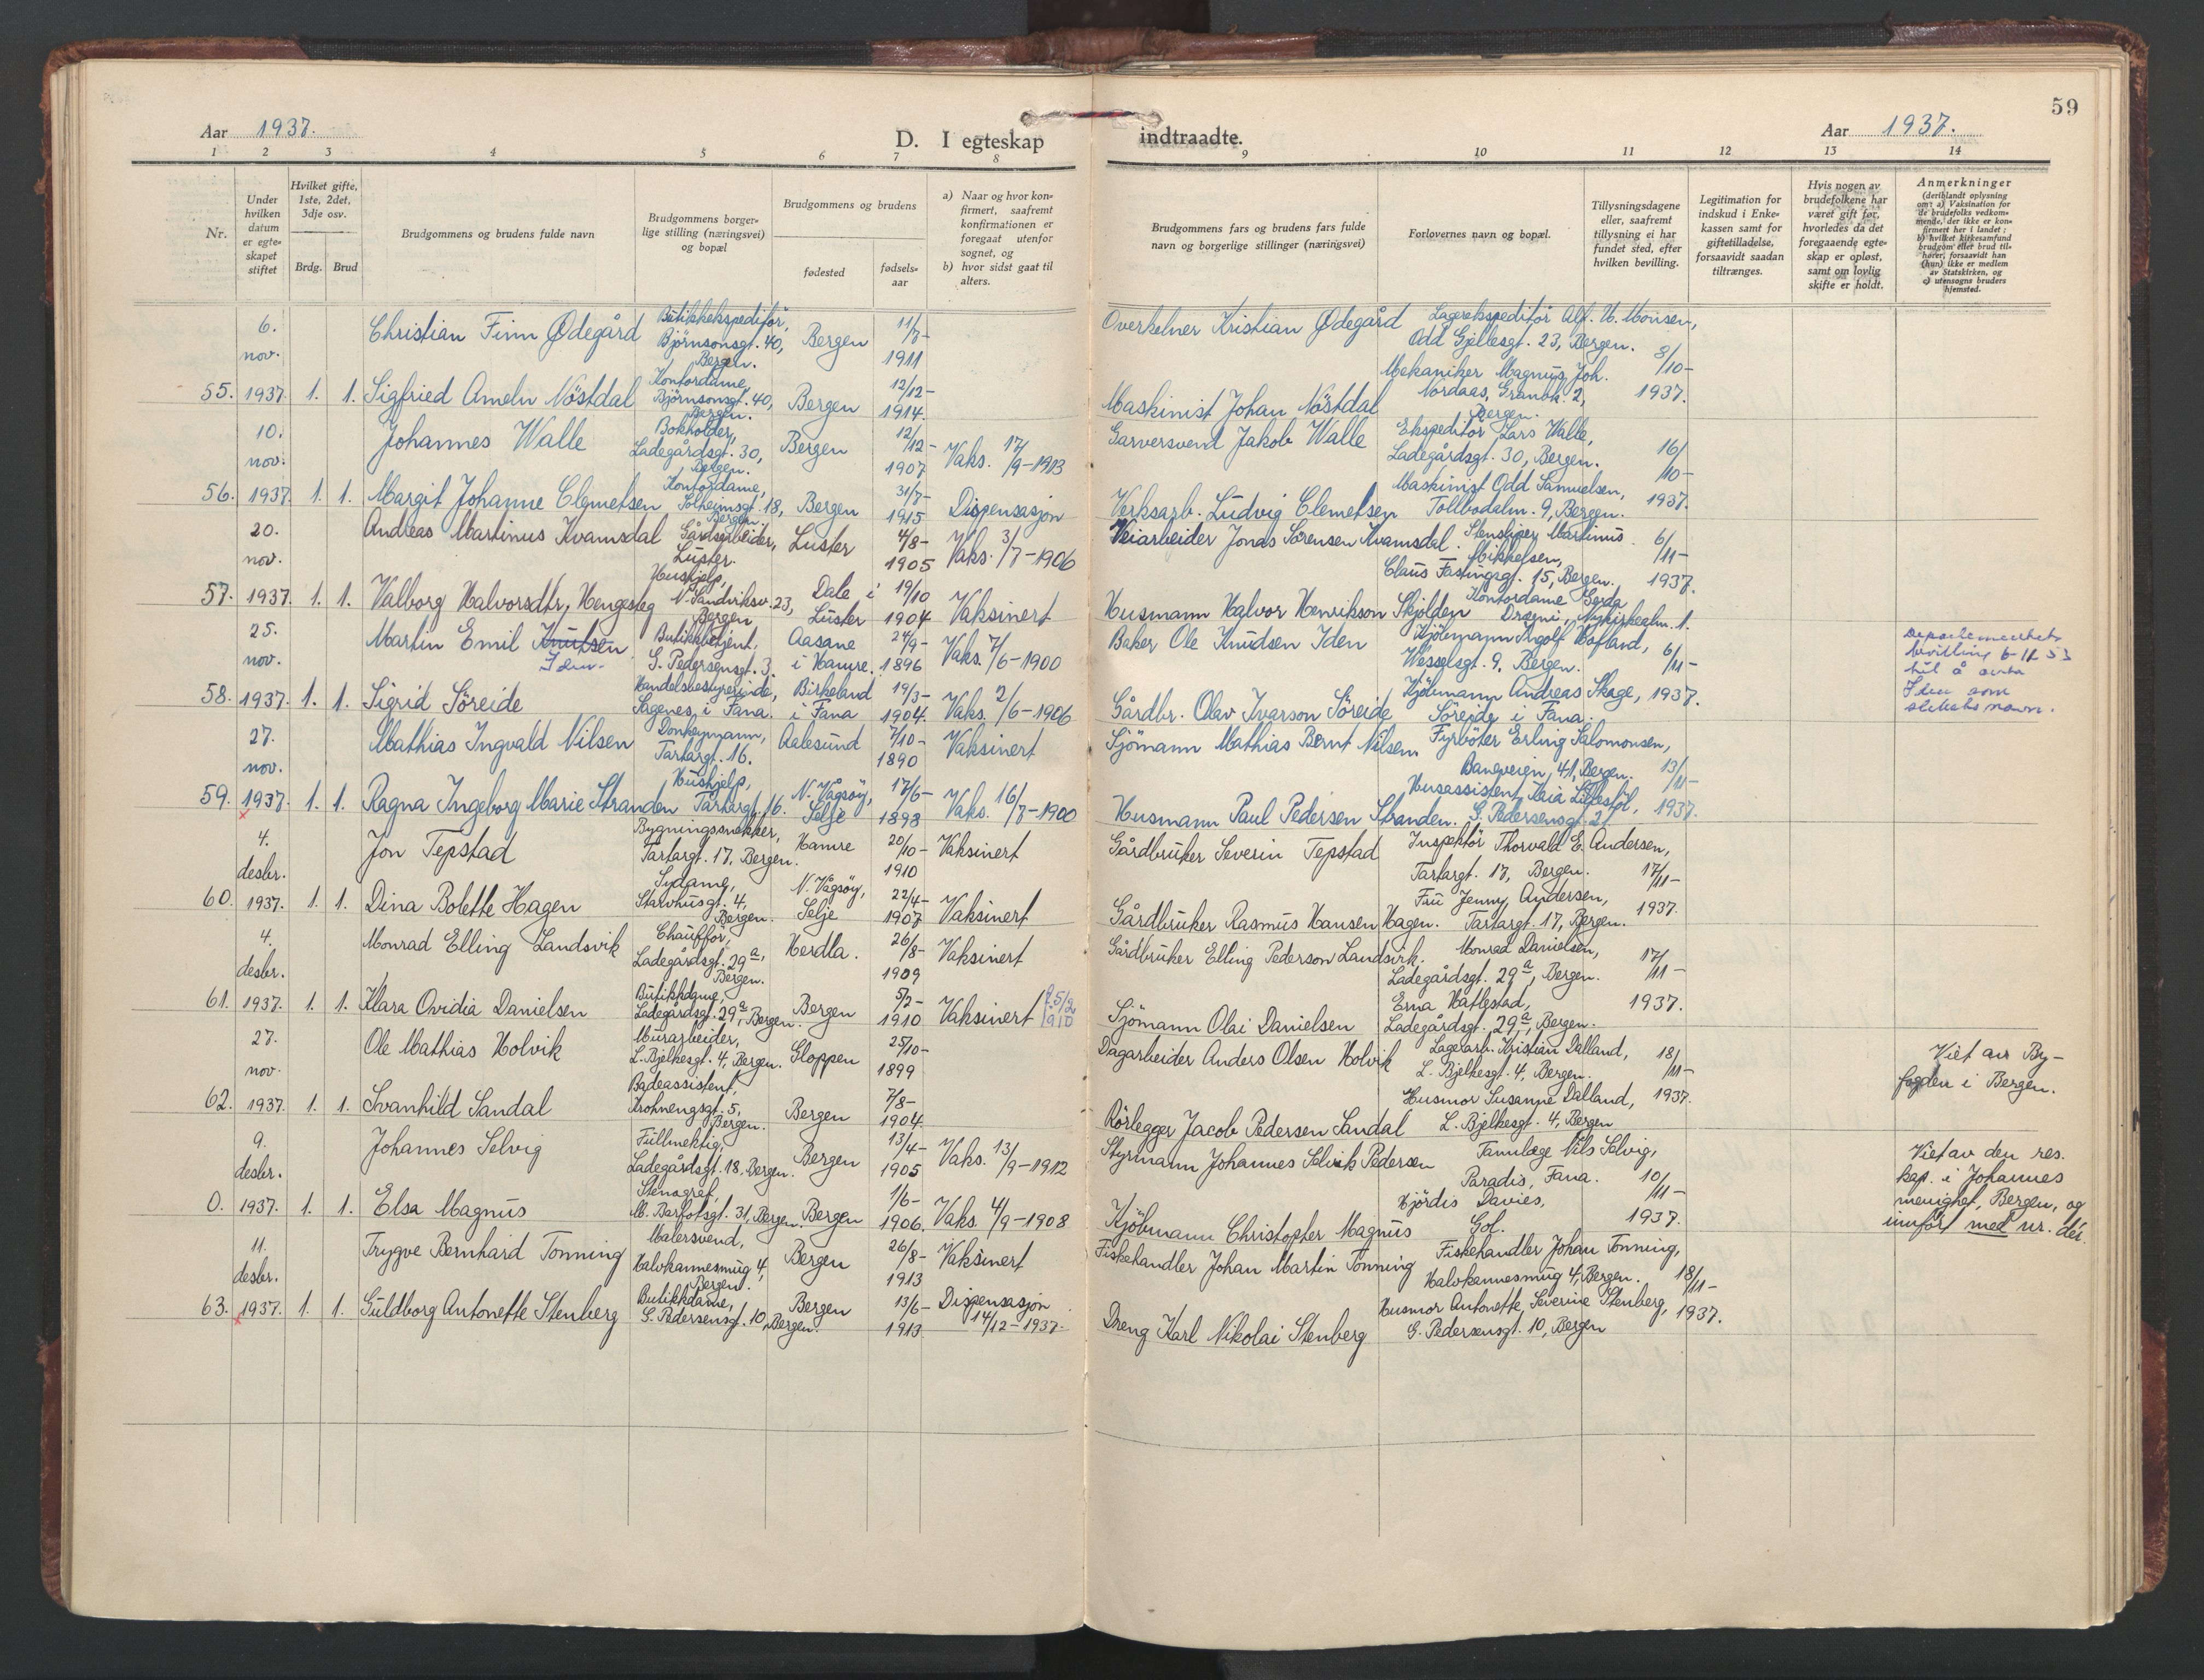 59
Aar 1937.
D. I egteskap indtraadte.
Aar 1937.
1 2 3 4 5 6 7 8 9 10 11 12 13 14
Nr.
Under hvilken datum er egteskapet stiftet
Hvilket gifte, 1ste, 2det, 3dje osv.
Brdg. Brud
Brudgommens og brudens fulde navn
Brudgommens borgerlige stilling (næringsvei) og bopæl
Brudgommens og brudens
fødested
fødselsaar
a) Naar og hvor konfirmert, saafremt konfirmationen er foregaat utenfor sognet, og
b) hvor sidst gaat til alters.
Brudgommens fars og brudens fars fulde navn og borgerlige stillinger (næringsvei)
Forlovernes navn og bopæl.
Tillysningsdagene eller, saafremt tillysning ei har fundet sted, efter hvilken bevilling.
Legitimation for indskud i Enkekassen samt for giftetilladelse, forsaavidt saadan tiltrænges.
Hvis nogen av brudefolkene har været gift før, hvorledes da det foregaaende egteskap er opløst, samt om lovlig skifte er holdt.
Anmerkninger (deriblandt oplysning om: a) Vaksination for de brudefolks vedkommende, der ikke er konfirmert her i landet; b) hvilket kirkesamfund brudgom eller brud tilhører, forsaavidt han (hun) ikke er medlem av Statskirken, og c) utensogns bruders hjemsted.
55. 6. nov. 1937. 1. 1.
Christian Finn Ødegård
Butikkekspeditör, Björnsonsgt. 40, Bergen.
Bergen 11/7- 1911
Overkelner Kristian Ødegård
Lagerekspeditör Alf. N. Monsen, Odd Gjellesgt. 23, Bergen.
8/10- 1937.
Sigfried Ameln Nöstdal
Kontordame, Björnsonsgt. 40, Bergen.
Bergen 12/12- 1914.
Maskinist Johan Nöstdal
Mekaniker Magnus Joh. Nordaas, Granbk. 2, Bergen.
56. 10. nov. 1937. 1. 1.
Johannes Walle
Bokholder, Ladegårdsgt. 30, Bergen.
Bergen 12/12- 1907
Vaks. 17/9-1913
Garversvend Jakob Walle
Ekspeditör Lars Walle, Ladegårdsgt. 30, Bergen.
16/10- 1937.
Margit Johanne Clemetsen
Kontordame, Solheimsgt. 18, Bergen.
Bergen 31/7- 1915
Dispensasjon
Verksarb. Ludvig Clemetsen
Maskinist Odd Samuelsen, Tollbodalm. 9, Bergen.
57. 20. nov. 1937. 1. 1.
Andreas Martinus Kvamsdal
Gårdsarbeider, Luster.
Luster 4/8- 1905
Vaks. 3/7-1906
Veiarbeider Jonas Sörensen Kvamsdal.
Stensliper Martinus Mikkelsen, Claus Fastingsgt. 15, Bergen.
6/11- 1937.
Valborg Halvorsdtr. Hengesteg
Hushjelp, N. Sandviksv. 23, Bergen
Dale i Luster 19/10 1904
Vaksinert
Husmann Halvor Henrikson Skjolden
Kontordame Gerda Drægni, Nykirkealm. 1.
58. 25. nov. 1937. 1. 1.
Martin Emil Knutsen Iden-
Butikkbetjent, G. Pedersensgt. 3.
Aasane i Hamre. 24/9- 1896
Vaks. 7/6-1900
Baker Ole Knudsen Iden
Kjöbmann Ingolf Hofland, Wesselsgt. 9, Bergen.
6/11- 1937.
Departementets bevilling 6-11 53 til å anta Iden som slektsnavn.
Sigrid Söreide
Handelsbestyrerinde, Sagenes, i Fana.
Birkeland i Fana 19/3- 1904.
Vaks. 2/6-1906
Gårdbr. Olav Ivarson Söreide
Kjöbmann Andreas Skage, Söreide i Fana.
59. 27. nov. 1937. 1. 1.
Mathias Ingvald Nilsen
Donkeymann, Tartargt. 16.
Aalesund 7/10- 1890
Vaksinert
Sjömann Mathias Bernt Nilsen
Fyrböter Erling Salomonsen, Baneveien 41, Bergen.
13/11- 1937.
Ragna Ingeborg Marie Stranden
Hushjelp, Tartargt. 16.
N. Vågsöy, Selje 17/6- 1898
Vaks. 16/7-1900
Husmann Paul Pedersen Stranden.
Husassistent Kaia Lillestöl, G. Pedersensgt. 21.
60. 4. desbr. 1937. 1. 1.
Jon Tepstad
Bygningssnekker, Tartargt. 17, Bergen.
Hamre 20/10- 1910
Vaksinert
Gårdbruker Severin Tepstad
Inspektör Thorvald E. Andersen, Tartargt. 17, Bergen.
17/11- 1937.
Dina Bolette Hagen
Sydame, Stalvhusgt. 4, Bergen.
N. Vågsöy, Selje 22/4- 1907
Vaksinert
Gårdbruker Rasmus Hansen Hagen.
Fru Jenny Andersen, Tartargt. 17, Bergen.
61. 4. desbr. 1937. 1. 1.
Monrad Elling Landsvik
Chaufför, Ladegårdsgt. 29a, Bergen.
Herdla. 26/8- 1909
Vaksinert
Gårdbruker Elling Pederson Landsvik.
Monrad Danielsen, Ladegårdsgt. 29a, Bergen.
17/11- 1937.
Klara Ovidia Danielsen
Butikkdame, Ladegårdsgt. 29a, Bergen.
Bergen 5/2- 1910
Vaksinert 25/2 1910
Sjömann Olai Danielsen
Erna Hatlestad, Ladegårdsgt. 29a, Bergen.
62. 27. nov. 1937. 1. 1.
Ole Mathias Holvik
Murarbeider, L. Bjelkesgt. 4, Bergen.
Gloppen 25/10- 1899
Dagarbeider Anders Olsen Holvik
Lagerarb. Kristian Dalland, L. Bjelkesgt. 4, Bergen.
18/11- 1937.
Viet av Byfogden i Bergen.
Svanhild Sandal
Badeassistent, Krohnengsgt. 5, Bergen.
Bergen 7/8- 1904.
Rörlegger Jacob Pedersen Sandal
Husmor Susanne Dalland, L. Bjelkesgt. 4, Bergen
0. 9. desbr. 1937. 1. 1.
Johannes Selvig
Fullmektig, Ladegårdsgt. 18, Bergen.
Bergen 13/4- 1905
Vaks. 13/9-1912
Styrmann Johannes Selvik Pedersen
Tannlæge Nils Selvig, Paradis, Fana.
10/11- 1937.
Viet av den res. kap. i Johannes menighet, Bergen, og innfört med nr. der.
Elsa Magnus
Stenograf, M. Barfotsgt. 31, Bergen.
Bergen 1/6- 1906.
Vaks. 4/9-1908
Kjöbmann Christopher Magnus
Hjördis Davies, Gol.
63. 11. desbr. 1937. 1. 1.
Trygve Bernhard Tonning
Malersvend, Halvkannesmug 4, Bergen.
Bergen 26/8- 1913
Vaksinert
Fiskehandler Johan Martin Tonning
Fiskehandler Johan Tonning, Halvkannesmug 4, Bergen.
18/11- 1937.
Guldborg Antonette Stenberg
Butikkdame, G. Pedersensgt. 10, Bergen.
Bergen 13/6- 1913
Dispensasjon 14/12-1937.
Dreng Karl Nikolai Stenberg
Husmor Antonette Severine Stenberg, G. Pedersensgt. 10, Bergen